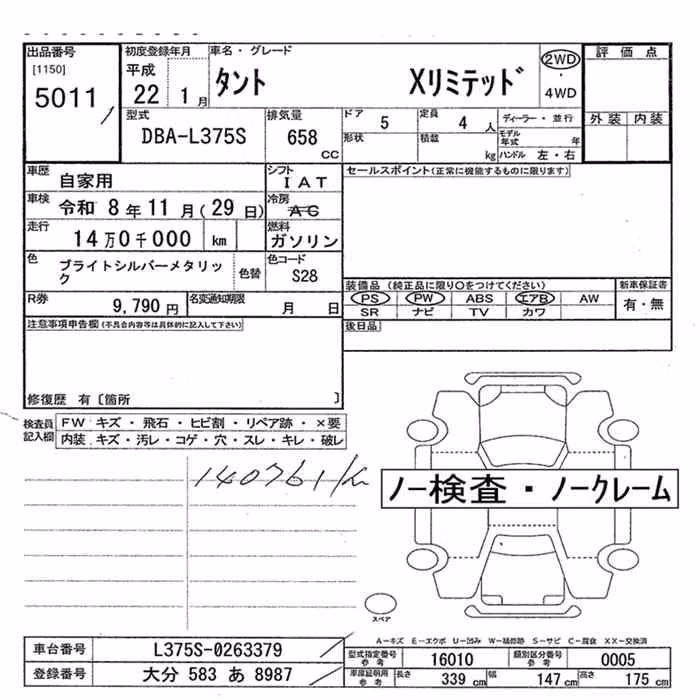 出品番号 初度登録年月 車名・グレード 評価点
[1150] 平成 2WD
5011 22 1月 タント Xリミテッド ・
4WD
型式 排気量 ドア 5 定員 4人 ディーラー・並行 外装 内装
DBA-L375S 658 cc 形状 積載 kg モデル年式 年
ハンドル 左・右
車歴 自家用 シフト IAT セールスポイント(正常に機能するものに限ります)
車検 令和 8年 11月(29日) 冷房 AC
走行 14万0千000 km 燃料 ガソリン
色 ブライトシルバーメタリック 色替 色コード S28
装備品(純正品に限り○をつけてください) 新車保証書
R券 9,790円 名変通知期限 月 日 PS PW ABS エアB AW 有・無
SR ナビ TV カワ
注意事項申告欄(不具合内容等は具体的に記入して下さい) 後日品
修復歴 有〔箇所 〕
検査員記入欄 FW キズ・飛石・ヒビ割・リペア跡・×要
内装 キズ・汚レ・コゲ・穴・スレ・キレ・破レ
140761km
ノー検査・ノークレーム
スペア
A-キズ E-エクボ U-凹み W-補修跡 S-サビ C-腐食 XX-交換済
車台番号 L375S-0263379 型式指定番号 参考 16010 類別区分番号 参考 0005
登録番号 大分 583 あ 8987 車庫証明用 参考 長さ 339 cm 幅 147 cm 高さ 175 cm